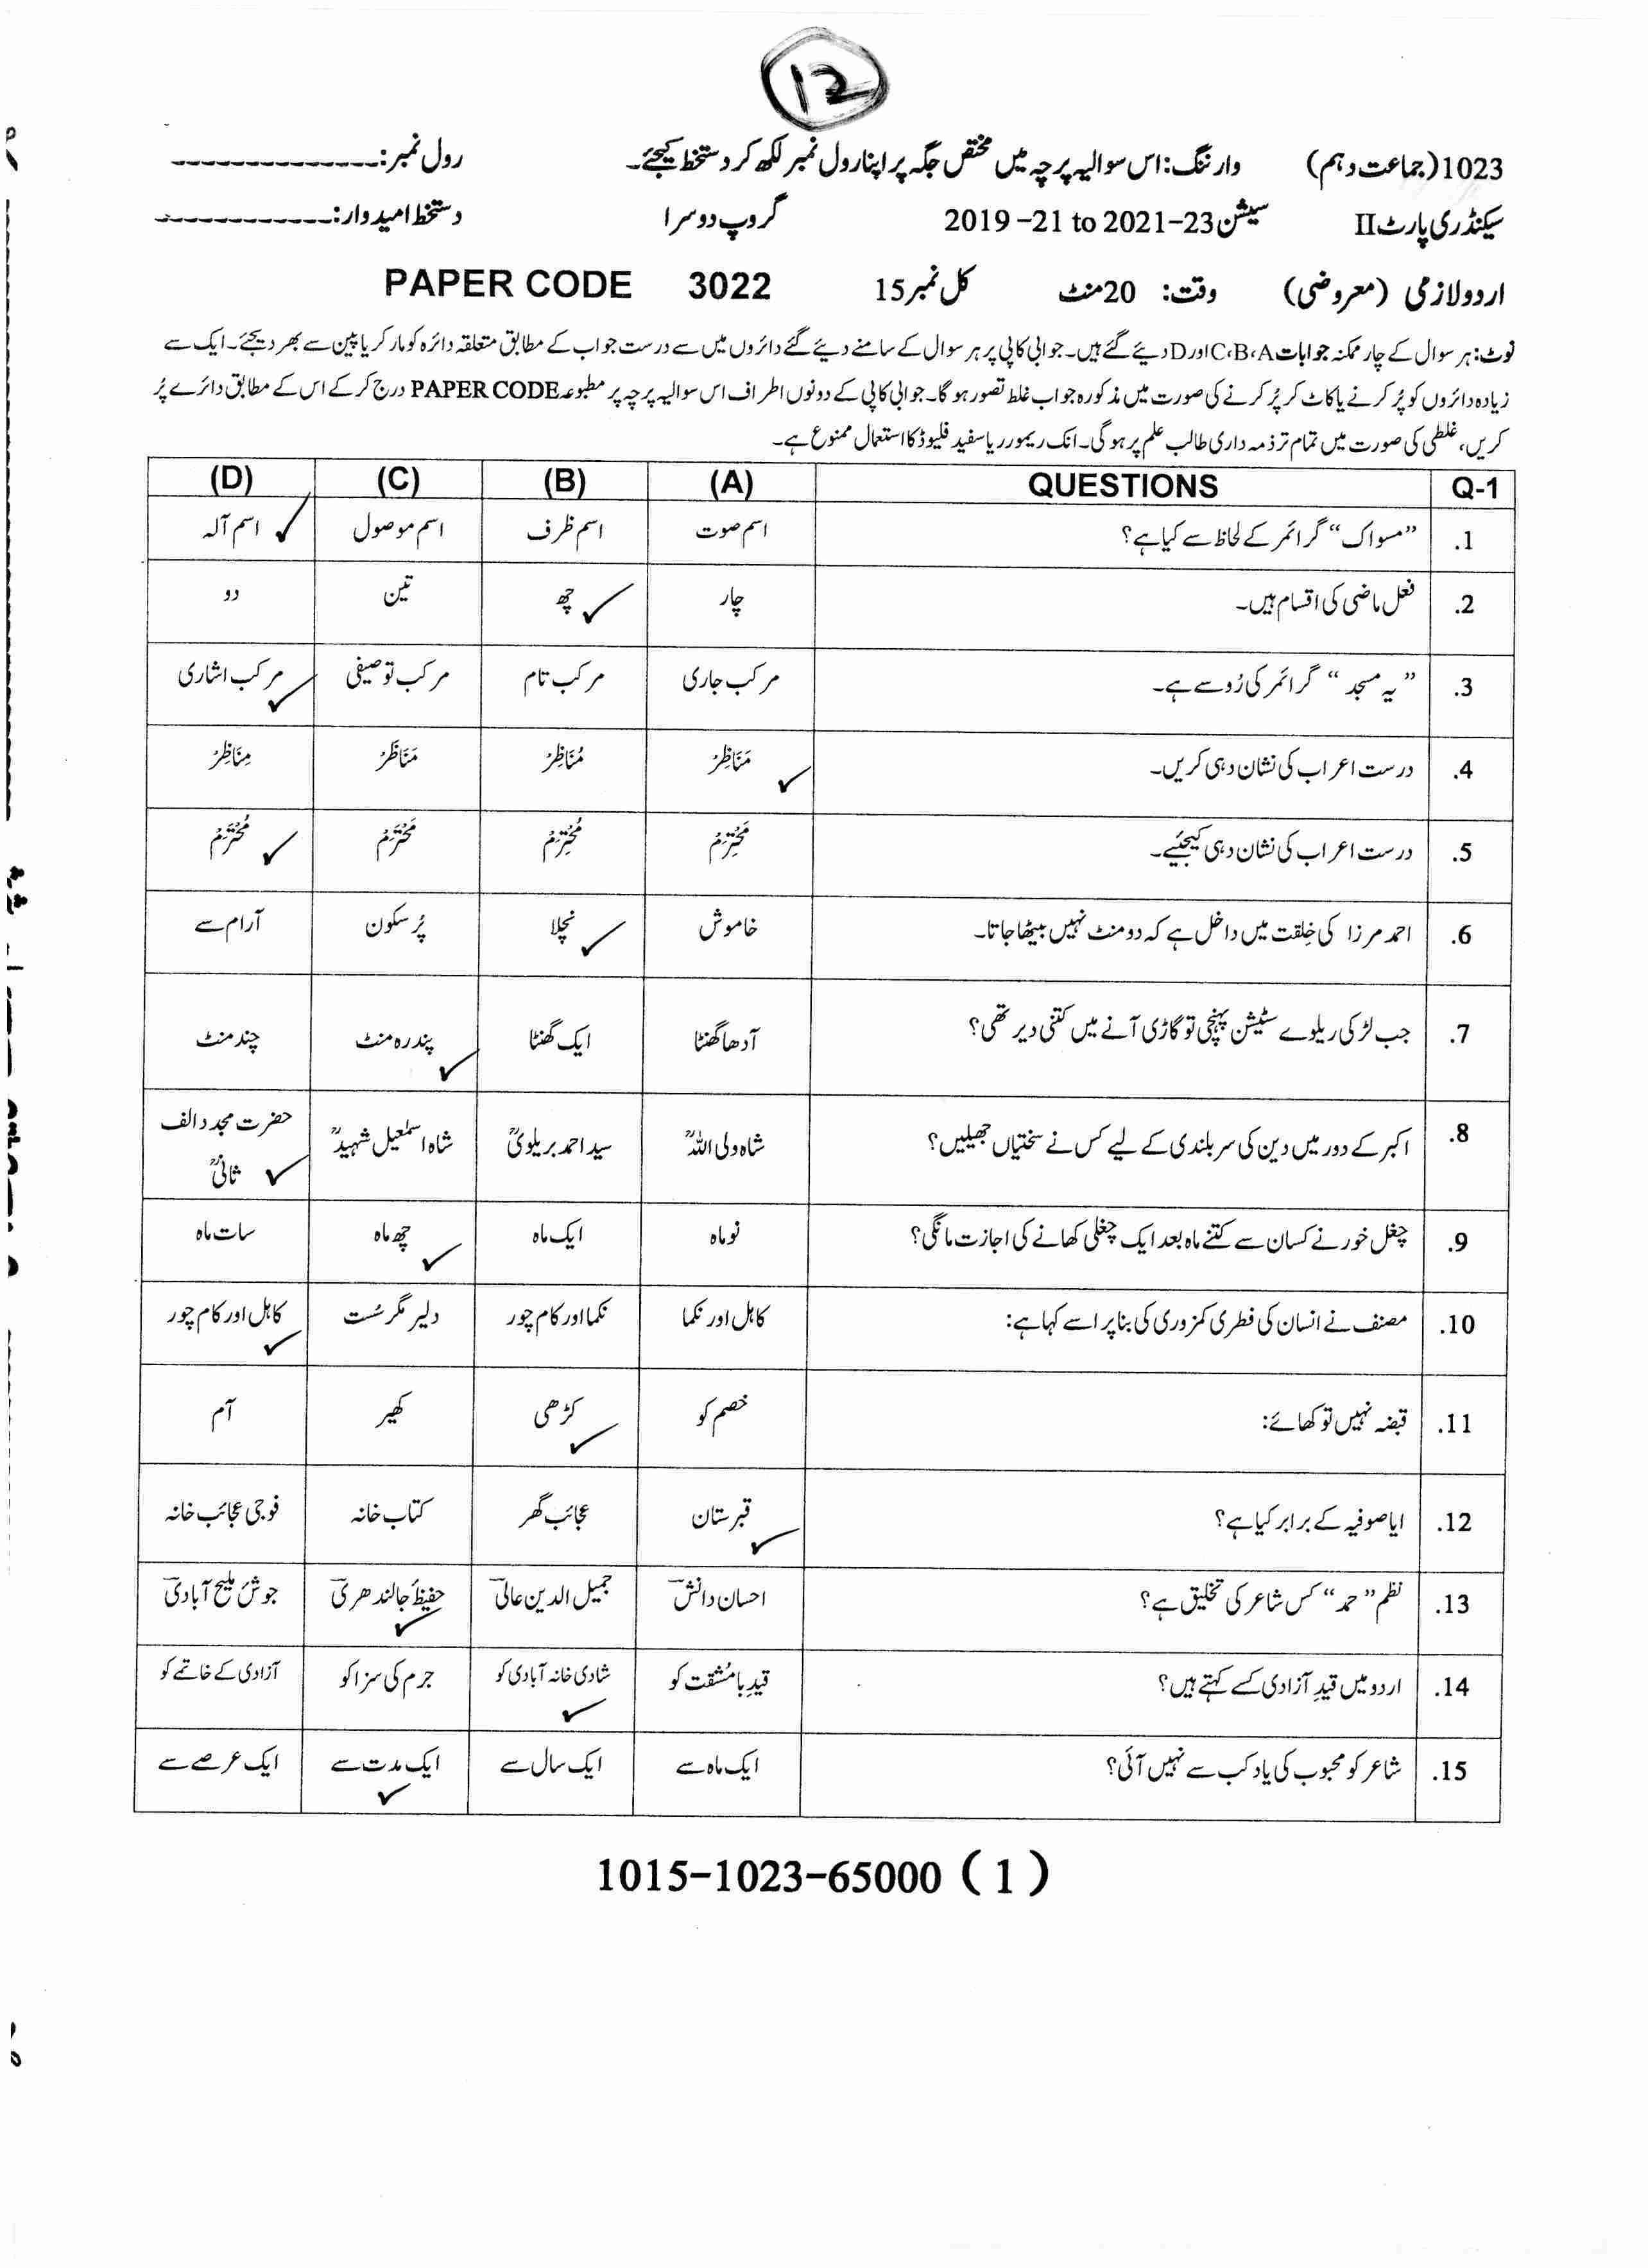 12
1023(جماعت دہم) وارننگ: اس سوالیہ پرچہ میں مختص جگہ پر اپنا رول نمبر لکھ کر دستخط کیجئے۔ رول نمبر:--------------
سیکنڈری پارٹ II سیشن 2019 -21 to 2021-23 گروپ دوسرا دستخط امیدوار:------------
اردو لازمی (معروضی) وقت: 20 منٹ کل نمبر 15 PAPER CODE 3022
نوٹ: ہر سوال کے چار ممکنہ جوابات C،B،A اور D دیئے گئے ہیں۔ جوابی کاپی پر ہر سوال کے سامنے دیئے گئے دائروں میں سے درست جواب کے مطابق متعلقہ دائرہ کو مارکر یا پین سے بھر دیجئے۔ ایک سے
زیادہ دائروں کو پُر کرنے یا کاٹ کر پُر کرنے کی صورت میں مذکورہ جواب غلط تصور ہو گا۔ جوابی کاپی کے دونوں اطراف اس سوالیہ پرچہ پر مطبوعہ PAPER CODE درج کر کے اس کے مطابق دائرے پُر
کریں، غلطی کی صورت میں تمام تر ذمہ داری طالب علم پر ہو گی۔ انک ریموور یا سفید فلیوڈ کا استعمال ممنوع ہے۔
Q-1 QUESTIONS (A) (B) (C) (D)
1. ”مسواک“ گرائمر کے لحاظ سے کیا ہے؟ اسم صوت اسم ظرف اسم موصول اسم آلہ
2. فعل ماضی کی اقسام ہیں۔ چار چھ تین دو
3. ”یہ مسجد“ گرائمر کی رُو سے ہے۔ مرکب جاری مرکب تام مرکب توصیفی مرکب اشاری
4. درست اعراب کی نشان دہی کریں۔ مَنَاظِرْ مُنَاظِرْ مَنَاظَرْ مِنَاظِرْ
5. درست اعراب کی نشان دہی کیجئیے۔
6. احمد مرزا کی خِلقت میں داخل ہے کہ دو منٹ نہیں بیٹھا جاتا۔ خاموش نچلا پُر سکون آرام سے
7. جب لڑکی ریلوے سٹیشن پہنچی تو گاڑی آنے میں کتنی دیر تھی؟ آدھا گھنٹا ایک گھنٹا پندرہ منٹ چند منٹ
8. اکبر کے دور میں دین کی سربلندی کے لیے کس نے سختیاں جھیلیں؟ شاہ ولی اللہؒ سید احمد بریلویؒ شاہ اسمٰعیل شہیدؒ حضرت مجدد الف ثانیؒ
9. چغل خور نے کسان سے کتنے ماہ بعد ایک چغلی کھانے کی اجازت مانگی؟ نو ماہ ایک ماہ چھ ماہ سات ماہ
10. مصنف نے انسان کی فطری کمزوری کی بنا پر اسے کہا ہے: کاہل اور نکما نکما اور کام چور دلیر مگر سُست کاہل اور کام چور
11. قبضہ نہیں تو کھائے: خصم کو کڑھی کھیر آم
12. ایا صوفیہ کے برابر کیا ہے؟ قبرستان عجائب گھر کتاب خانہ فوجی عجائب خانہ
13. نظم ”حمد“ کس شاعر کی تخلیق ہے؟ احسان دانشؔ جمیل الدین عالیؔ حفیظؔ جالندھری جوشؔ ملیح آبادی
14. اردو میں قیدِ آزادی کسے کہتے ہیں؟ قیدِ بامُشقت کو شادی خانہ آبادی کو جرم کی سزا کو آزادی کے خاتمے کو
15. شاعر کو محبوب کی یاد کب سے نہیں آئی؟ ایک ماہ سے ایک سال سے ایک مدت سے ایک عرصے سے
1015-1023-65000 (1)